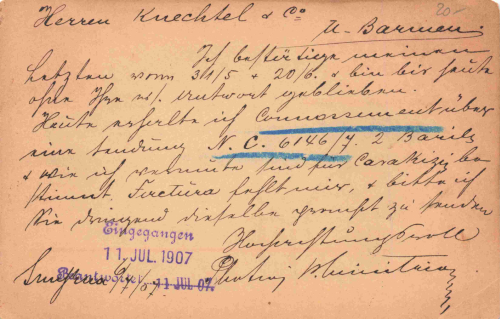 20-
Herren Knechtel & Co
U-Barmen.
Ich bestätige meinen
Letzten vom 31/5 & 20/6. & bin bis heute
ohne Ihre w/. Antwort geblieben.
Heute erhalte ich Connossement über
eine Sendung N. C. 6146/7. 2 Barils
& wie ich vermute sind für
stimmt. Factura fehlt mir, & bitte ich
Sie dringend dieselbe prompt zu senden
Hochachtungsvoll
Eingegangen
11 JUL 1907
Beantwortet 11 JUL 07.